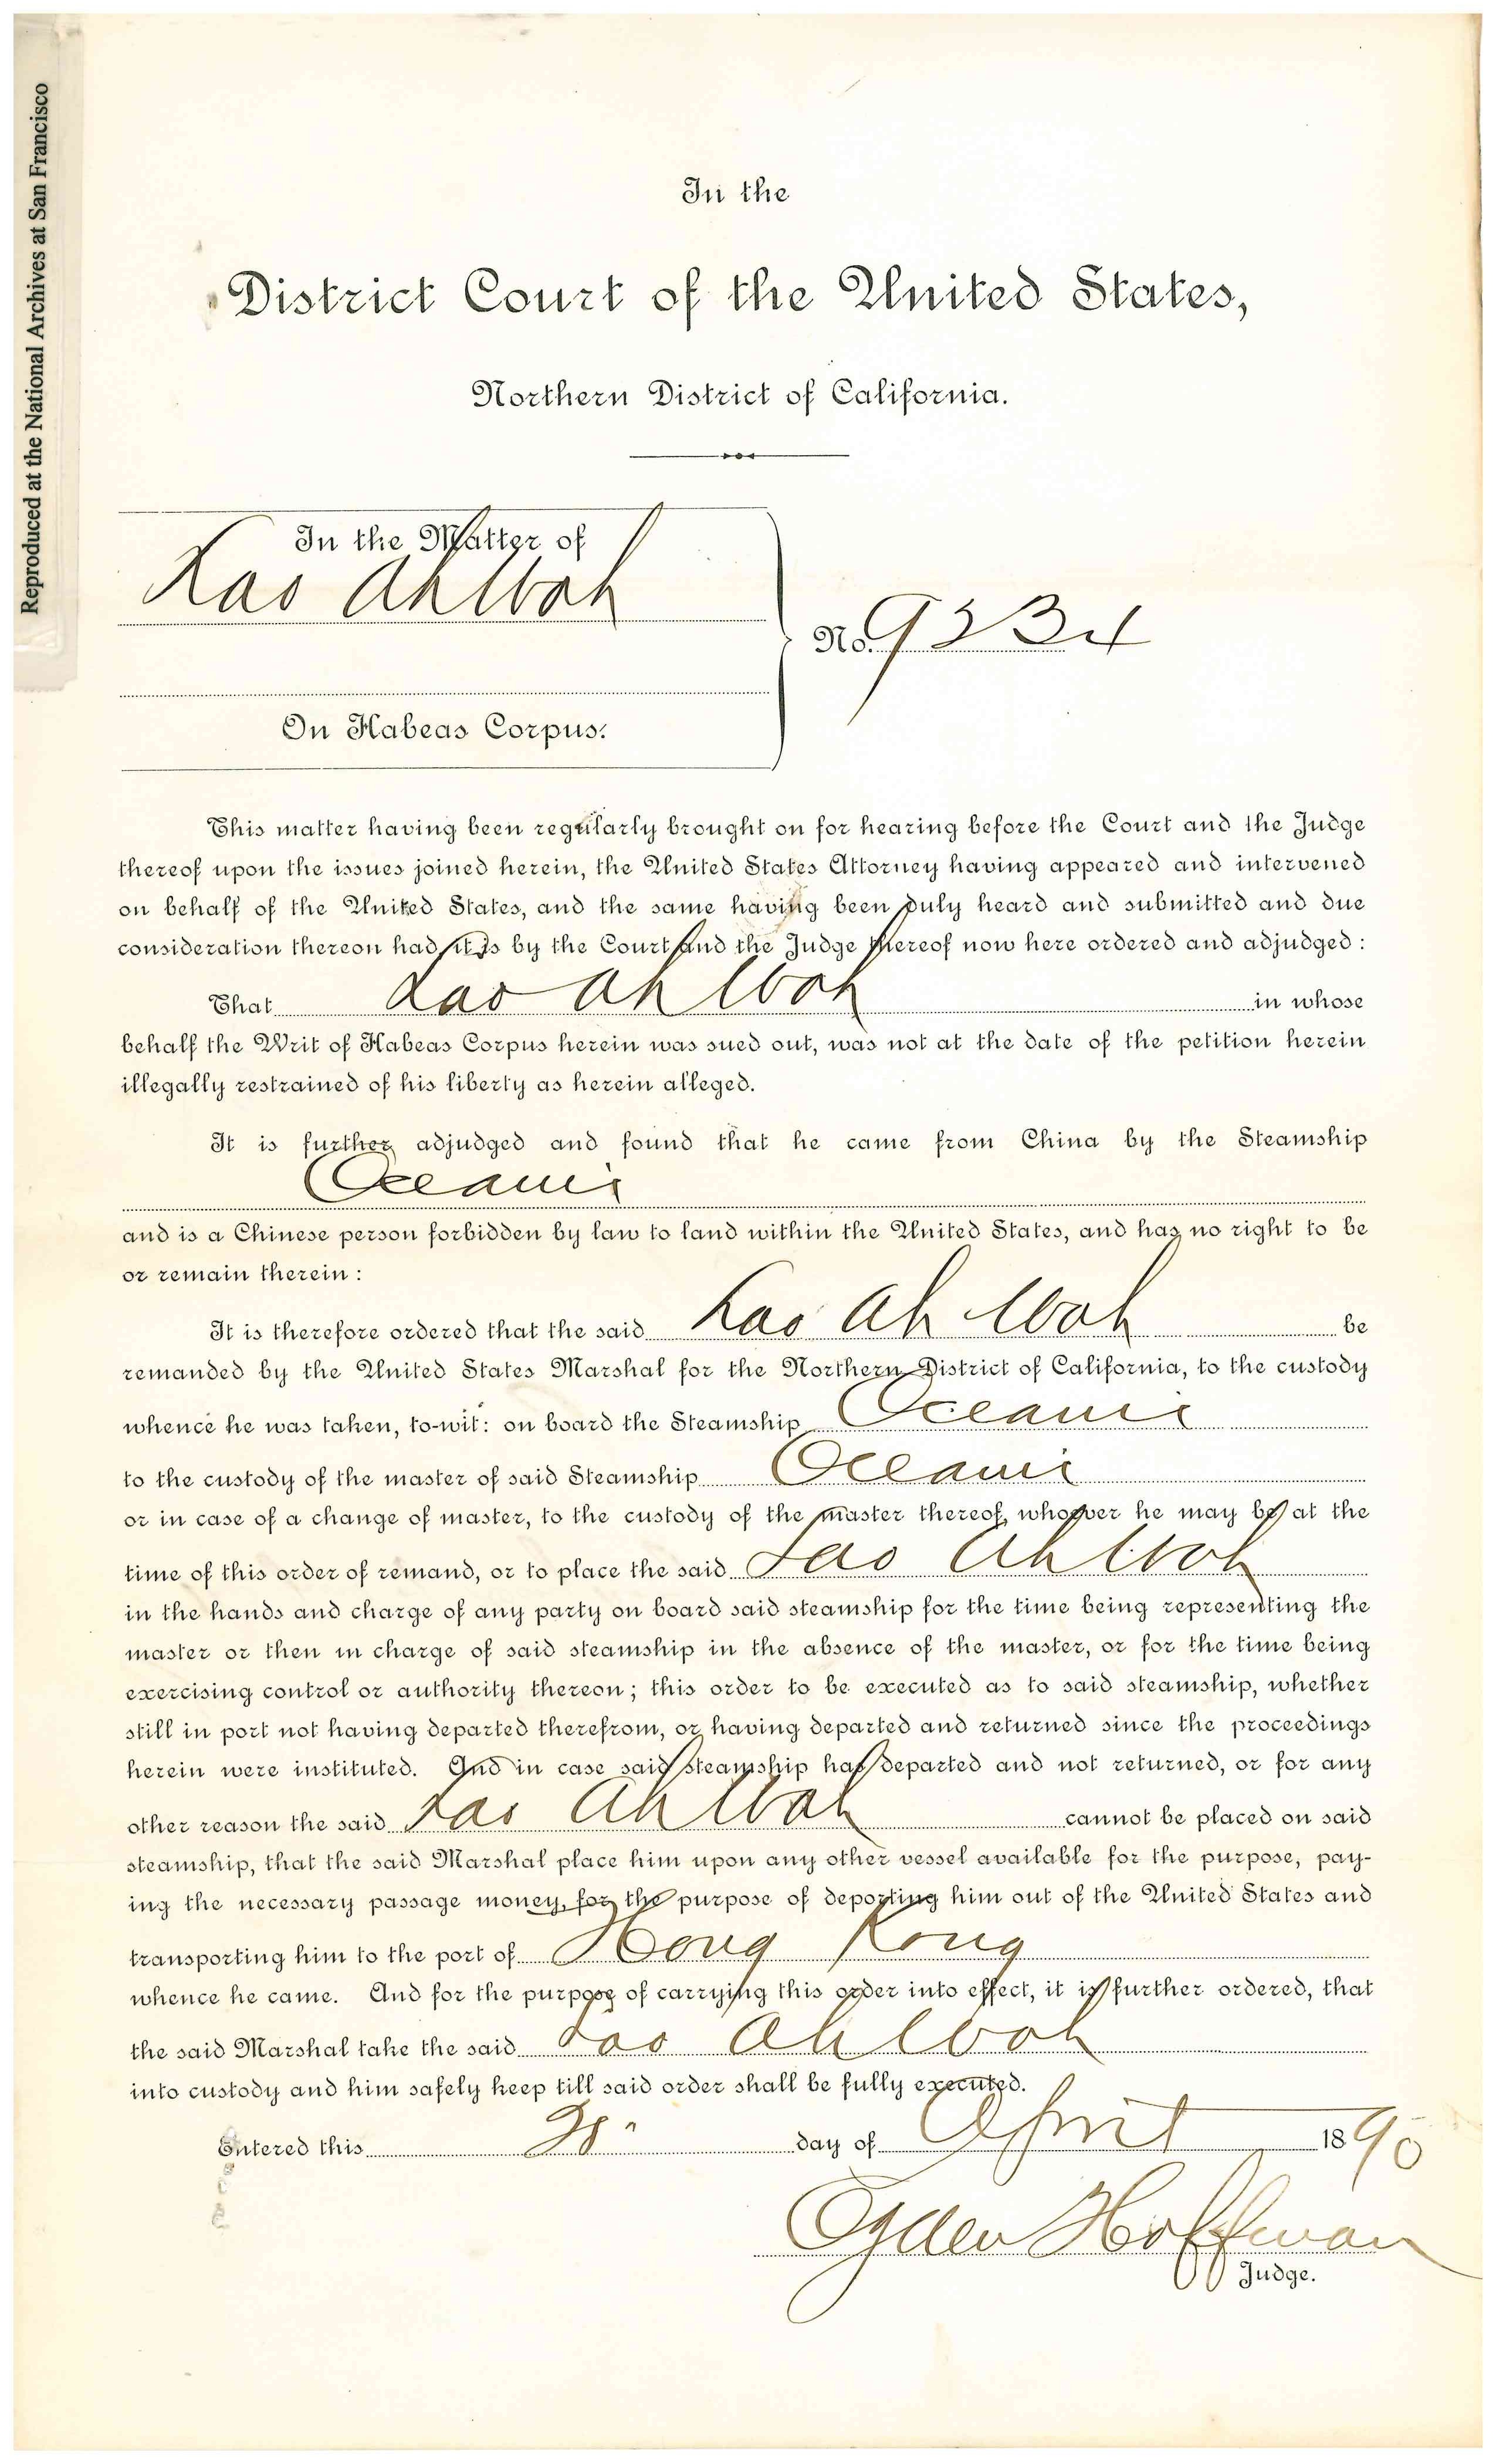 Reproduced at the National Archives at San Francisco
In the
District Court of the United States,
Northern District of California.
In the Matter of
Lao Ah Wah
No. 9234
On Habeas Corpus.
This matter having been regularly brought on for hearing before the Court and the Judge
thereof upon the issues joined herein, the United States Attorney having appeared and intervened
on behalf of the United States, and the same having been duly heard and submitted and due
consideration thereon had, it is by the Court and the Judge thereof now here ordered and adjudged :
That Lao Ah Wah in whose
behalf the Writ of Habeas Corpus herein was sued out, was not at the date of the petition herein
illegally restrained of his liberty as herein alleged.
It is further adjudged and found that he came from China by the Steamship
Oceanic
and is a Chinese person forbidden by law to land within the United States, and has no right to be
or remain therein :
It is therefore ordered that the said Lao Ah Wah be
remanded by the United States Marshal for the Northern District of California, to the custody
whence he was taken, to-wit: on board the Steamship Oceanic
to the custody of the master of said Steamship Oceanic
or in case of a change of master, to the custody of the master thereof, whoever he may be at the
time of this order of remand, or to place the said Lao Ah Wah
in the hands and charge of any party on board said steamship for the time being representing the
master or then in charge of said steamship in the absence of the master, or for the time being
exercising control or authority thereon; this order to be executed as to said steamship, whether
still in port not having departed therefrom, or having departed and returned since the proceedings
herein were instituted. And in case said steamship has departed and not returned, or for any
other reason the said Lao Ah Wah cannot be placed on said
steamship, that the said Marshal place him upon any other vessel available for the purpose, pay-
ing the necessary passage money, for the purpose of deporting him out of the United States and
transporting him to the port of Hong Kong
whence he came. And for the purpose of carrying this order into effect, it is further ordered, that
the said Marshal take the said Lao Ah Wah
into custody and him safely keep till said order shall be fully executed.
Entered this day of April 1890
Ogden Hoffman
Judge.